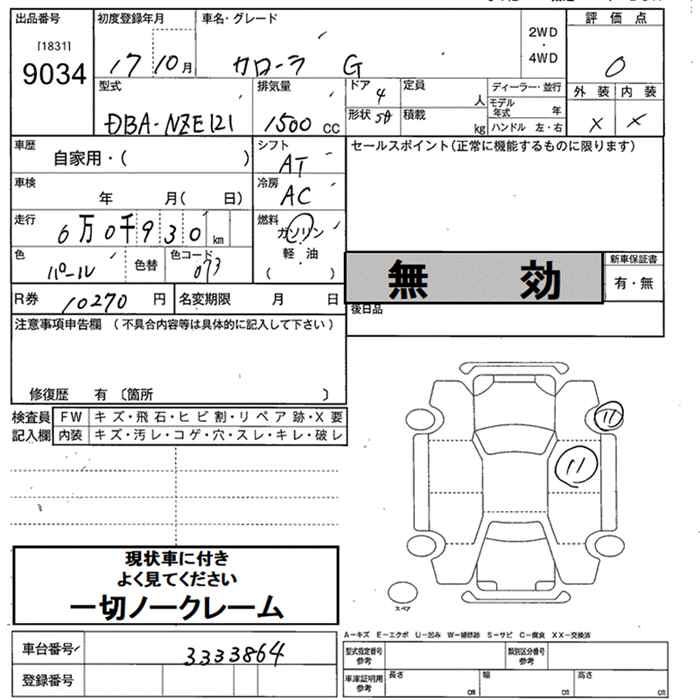 出品番号 初度登録年月 車名・グレード 評価点
[1831]
9034 17 10月 カローラ G 2WD・4WD 0
型式 排気量 ドア 4 定員 人 ディーラー・並行 外装 内装
DBA-NZE121 1500 CC 形状 積載 kg モデル年式 年 × ×
ハンドル 左・右
車歴 自家用・( ) シフト AT セールスポイント(正常に機能するものに限ります)
車検 年 月( 日) 冷房 AC
走行 6万0千930km 燃料 ガソリン
色 パール 色替 色コード 073 軽・油
( )
無効 新車保証書
有・無
R券 10270 円 名変期限 月 日 後日品
注意事項申告欄 (不具合内容等は具体的に記入して下さい)
修復歴 有 〔箇所 〕
検査員 FW キズ・飛石・ヒビ割・リペア跡・X要
記入欄 内装 キズ・汚レ・コゲ・穴・スレ・キレ・破レ
11
11
現状車に付き
よく見てください
一切ノークレーム
スペア
A-キズ E-エクボ U-凹み W-補修跡 S-サビ C-腐食 XX-交換済
車台番号 3333864 型式指定番号 参考 類別区分番号 参考
登録番号 車庫証明用 参考 長さ cm 幅 cm 高さ cm